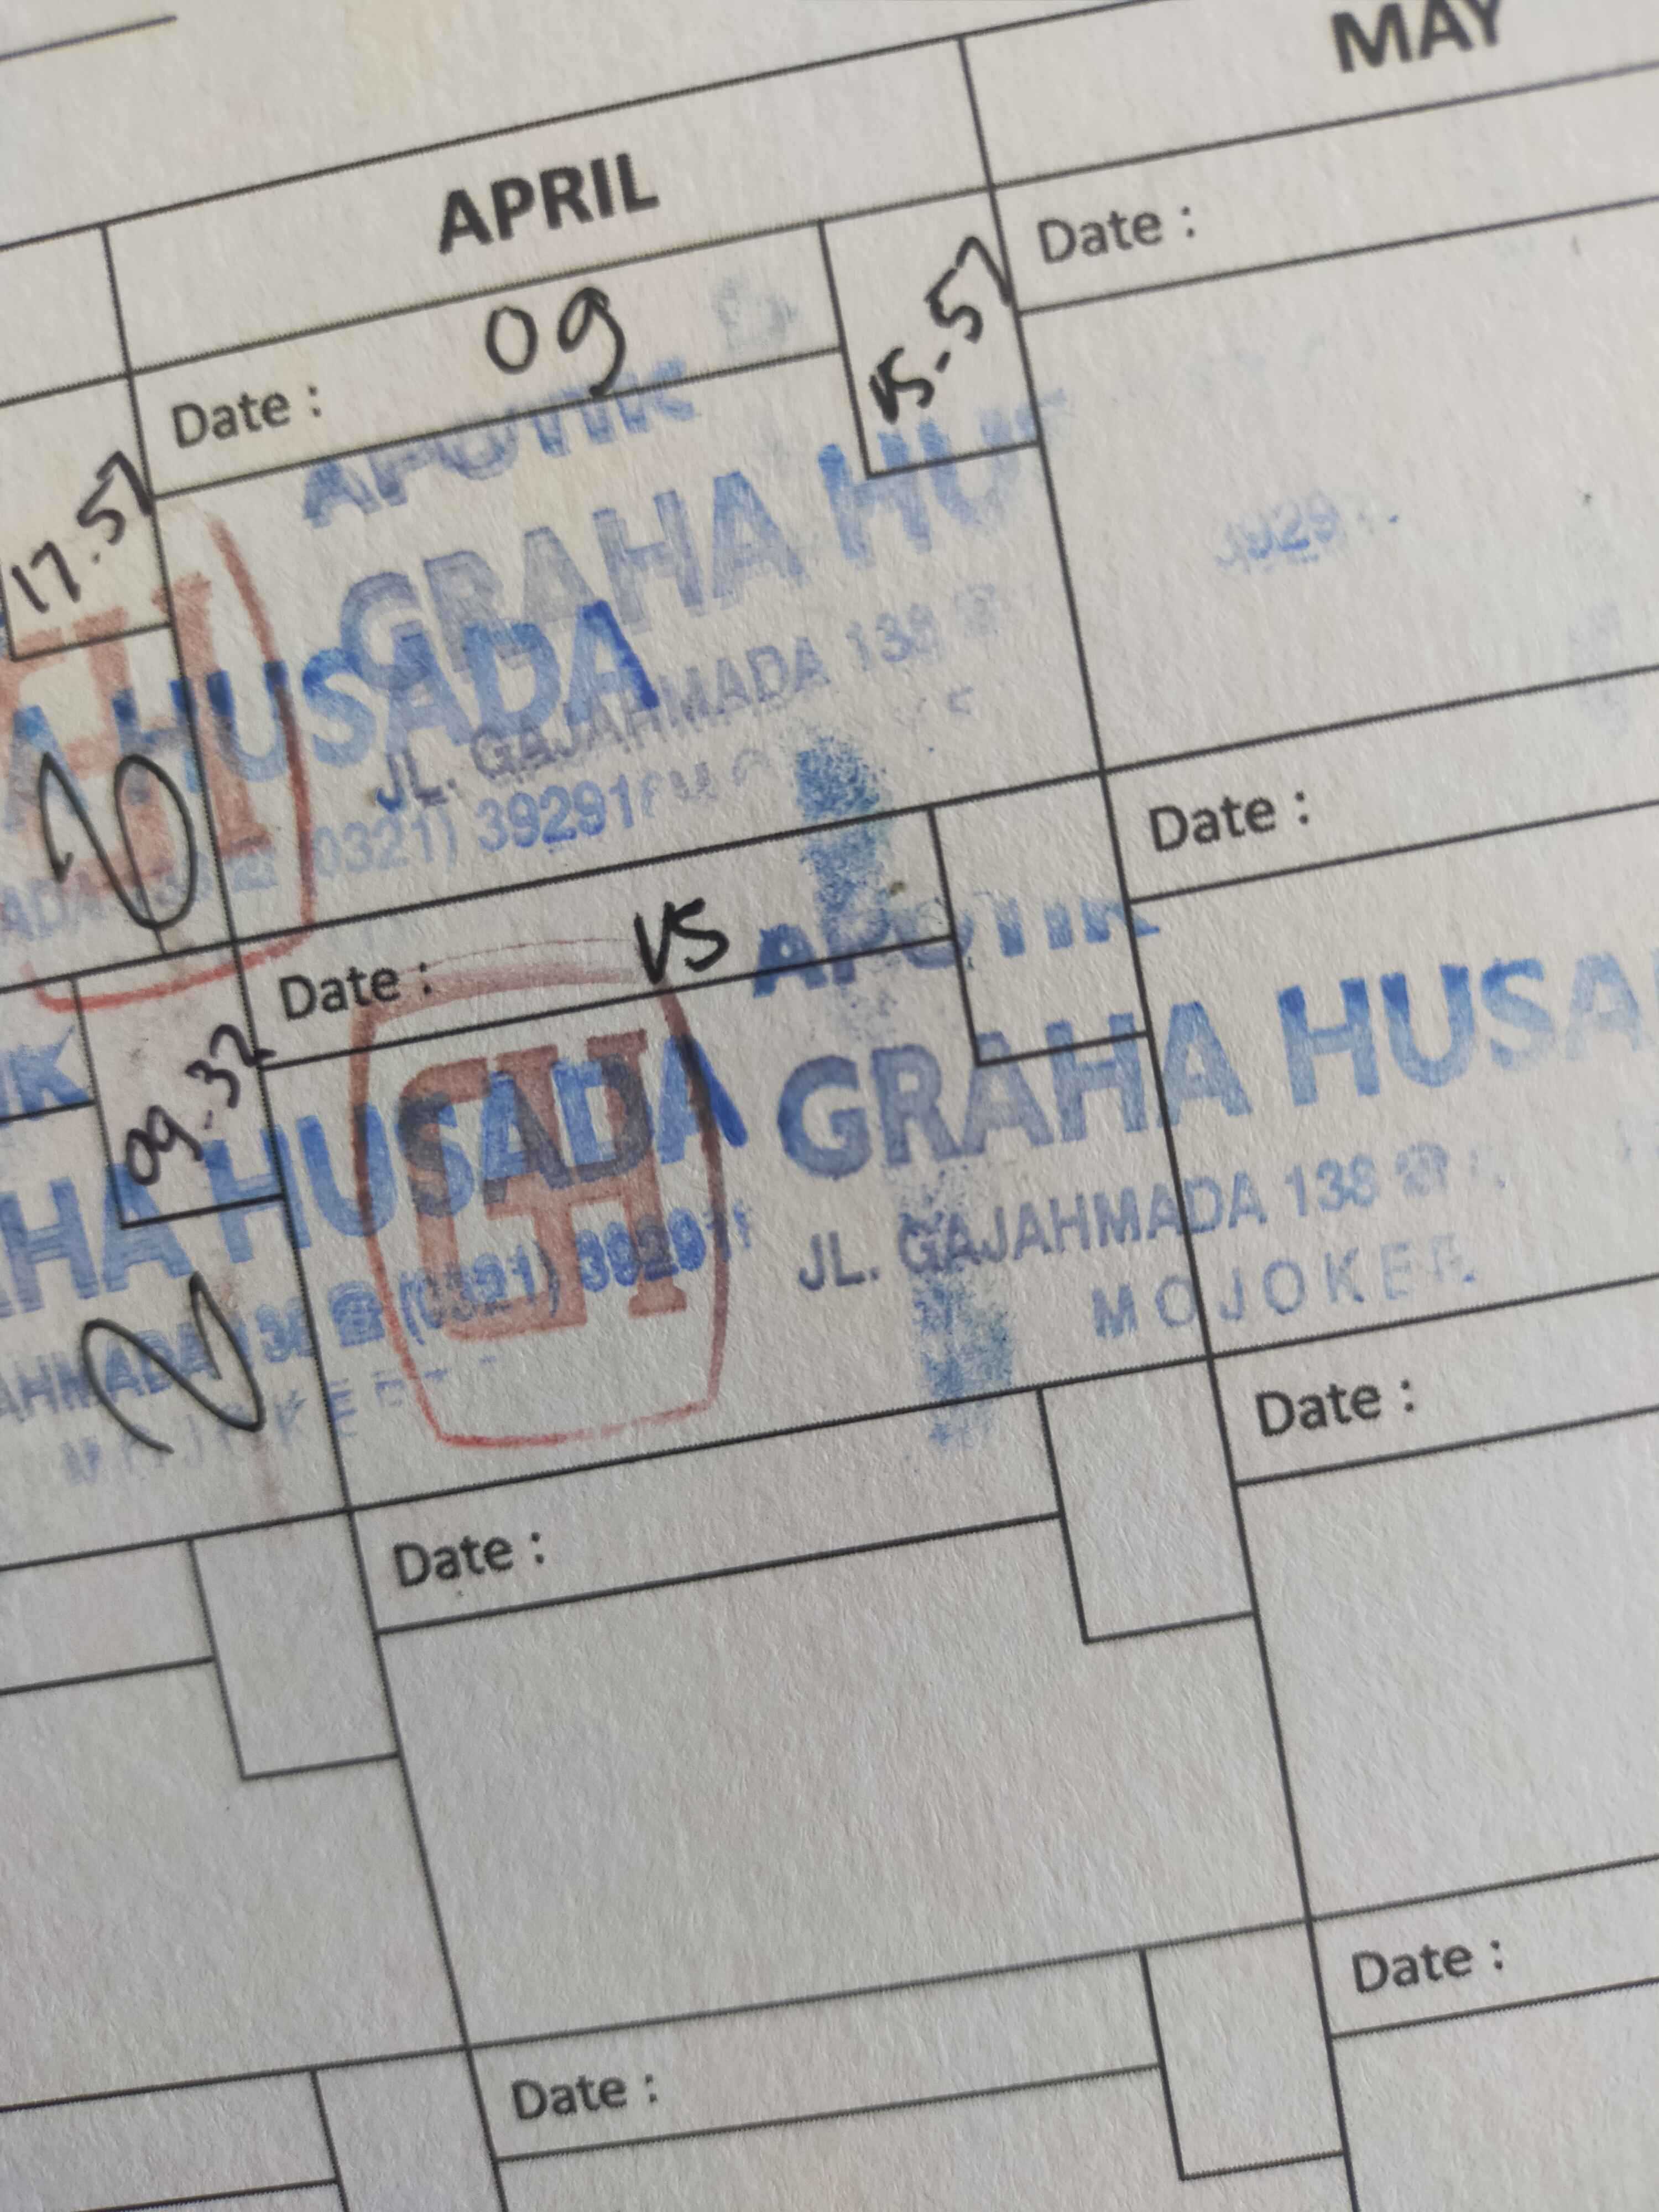 MAY
APRIL
Date :
Date : 09
15-57
17.57
APOTIK
GRAHA HUS
HUSADA
JL. GAJAHMADA 138
(0321) 392911
Date :
Date : 15
APOTIK
09-32
GRAHA HUSADA
HA HUSADA
JL. GAJAHMADA 138
AHMADA 138 ☎ (0321) 392911
MOJOKER
Date :
Date :
Date :
Date :